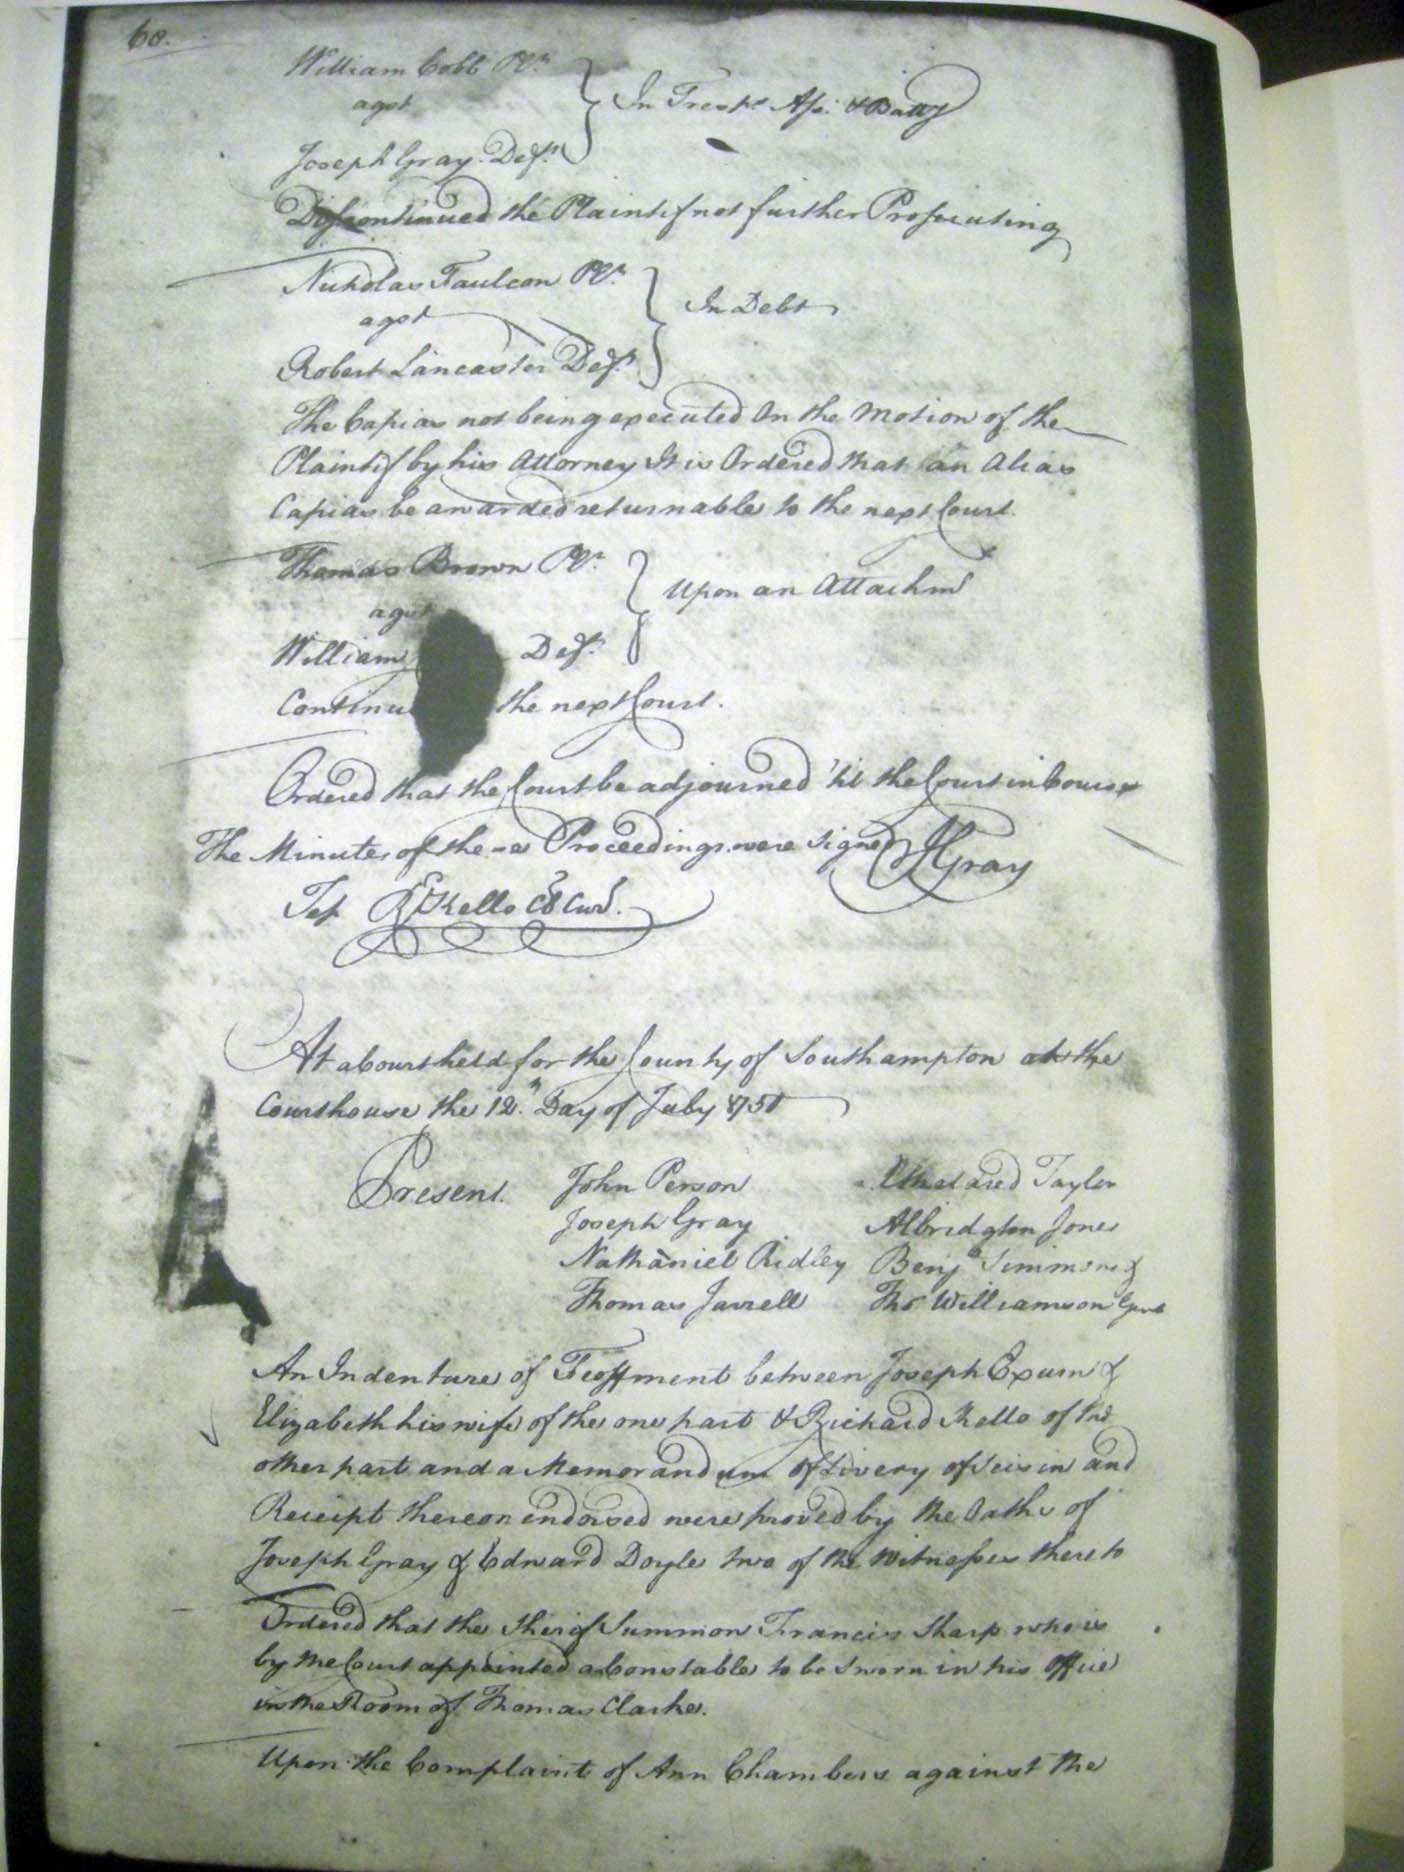 60.
William Cobb Plt.
agst
Joseph Gray. Deft.
In Tresps. Asst. & Batty
Discontinued the Plaintif not further Prosecuting
Nicholas Faulcon Plt.
agst
Robert Lancaster Deft.
In Debt
The Capias not being executed On the Motion of the
Plaintif by his Attorney It is Ordered that an Alias
Capias be awarded returnable to the next Court.
Thomas Brown Plt.
agst
William Deft.
Upon an Attachmt
Continu the next Court.
Ordered that the Court be adjourned 'til the Court in Course
The Minutes of these Proceedings were signed J Gray
Test R Kello Cl Curt.
At a Court held for the County of Southampton at the
Courthouse the 12th. Day of July 1750
Present.
John Person
Joseph Gray
Nathaniel Ridley
Thomas Jarrell
Etheldred Taylor
Albridgton Jones
Benja Simmons &
Thos Williamson Gent
An Indenture of Feoffment between Joseph Exum &
Elizabeth his wife of the one part & Richard Kello of the
other part and a Memorandum of Livery of Seisin and
Receipt thereon endorsed were proved by the Oaths of
Joseph Gray & Edward Doyle two of the Witnesses thereto
Ordered that the Sherif Summon Francis Sharp who is
by the Court appointed a Constable to be sworn in his Office
in the Room of Thomas Clarke.
Upon the Complaint of Ann Chambers against the